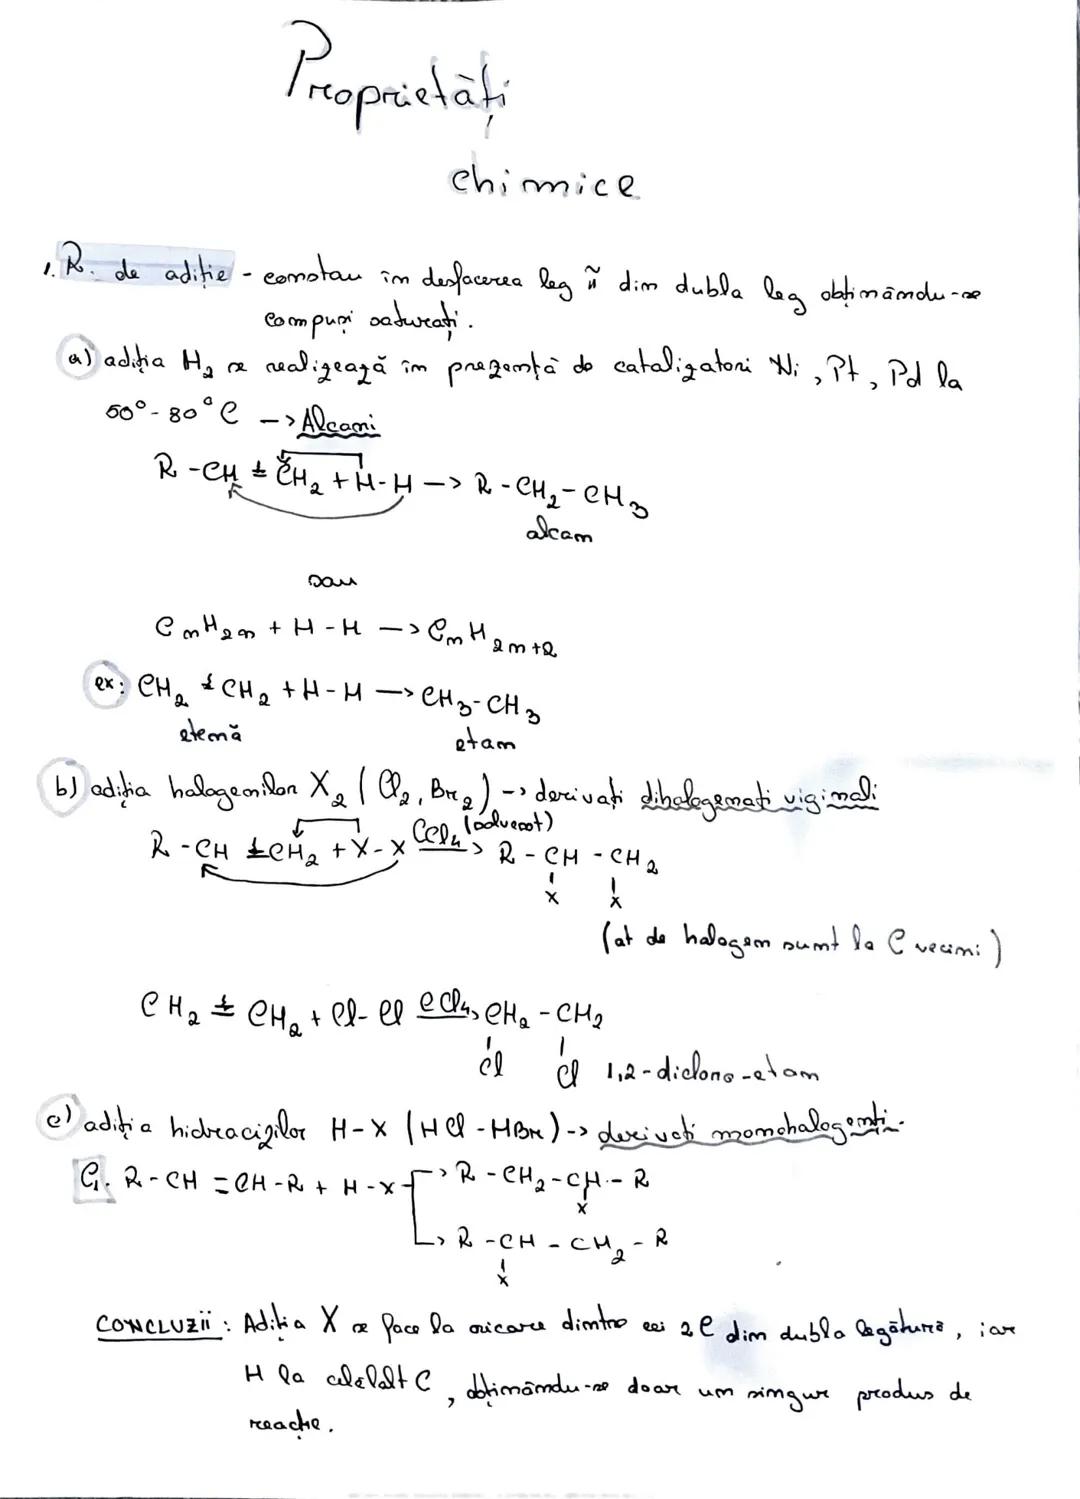 Proprietăți
chimice
1. R. de adiție - constau în desfacerea leg π din dubla leg obținându-se
compuși saturați.
a) adiția H₂ se realizează în prezență de catalizatori Ni, Pt, Pd la
50° - 80°C -> Alcani
R - CH = CH₂ + H - H -> R - CH₂ - CH₃
alcan
sau
CₙH₂ₙ + H - H -> CₙH₂ₙ₊₂
ex: CH₂ = CH₂ + H - H -> CH₃ - CH₃
etenă etan
b) adiția halogenilor X₂ (Cl₂, Br₂) -> derivați dihalogenați vicinali
R - CH = CH₂ + X - X CCl₄ (solvent) -> R - CH - CH₂
X X
(at de halogen sunt la C vecini)
CH₂ = CH₂ + Cl - Cl CCl₄ -> CH₂ - CH₂
Cl Cl 1,2 - dicloro - etan
c) adiția hidracizilor H - X (HCl - HBr) -> derivați monohalogenți.
G. R - CH = CH - R + H - X -> R - CH₂ - CH - R
X
-> R - CH - CH₂ - R
X
CONCLUZII: Adiția X se face la oricare dintre cei 2 C din dubla legătură, iar
H la celălalt C, obținându-se doar un singur produs de
reacție.